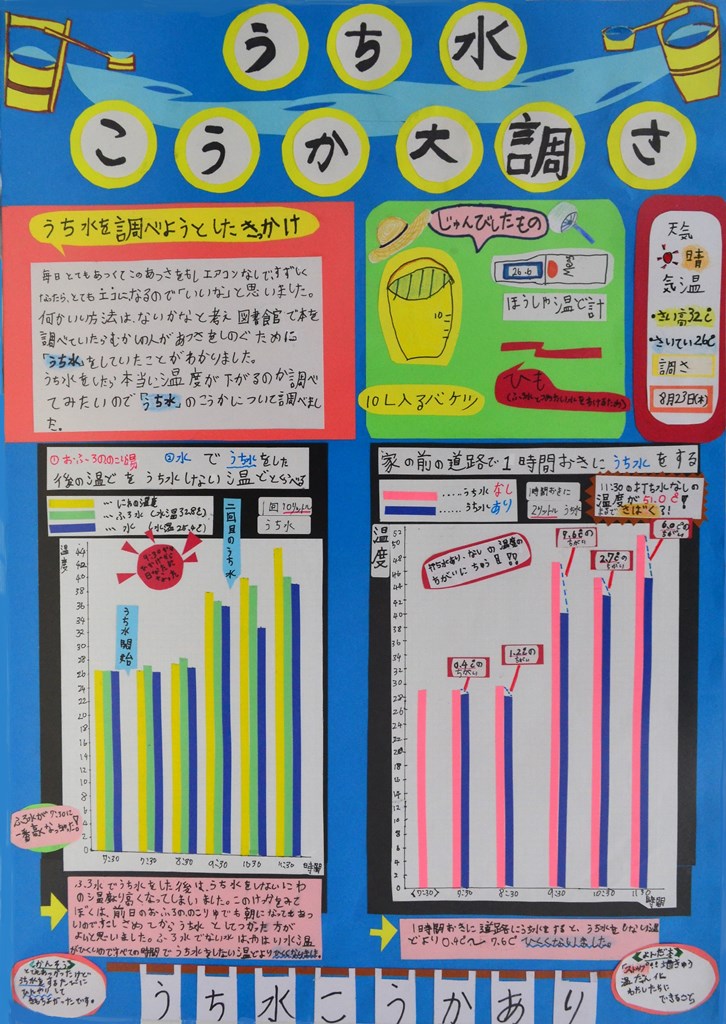 うち水
こうか大調さ
うち水を調べようとしたきっかけ
毎日とてもあつくてこのあつさをもしエアコンなしですずしく
なったら、とてもエコになるので「いいな」と思いました。
何かいい方法は、ないかなと考え図書館で本を
調べていたらむかしの人があつさをしのぐために
「うち水」をしていたことがわかりました。
うち水をしたら本当に温度が下がるのか調べ
てみたいので「うち水」のこうかについて調べまし
た。
じゅんびしたもの
26.6
ほうしゃ温ど計
10
10L入るバケツ
ひも
天気
晴
気温
さい高32℃
さいてい26℃
調さ
8月23日(木)
①おふろののこり湯 ②水 でうち水をした
後の温どをうち水しない温どとくらべる
にわの温度
ふろ水 (水温32.8℃)
水 (水温25.4℃)
1回10リットル
うち水
温度
うち水開始
二回目のうち水
44
40
38
36
34
32
30
28
26
24
22
20
18
16
14
12
10
8
6
4
2
0
7:30 7:30 8:30 9:30 10:30 11:30 時間
ふろ水が7:30に
一番高くなっちゃった!
ふろ水でうち水をした後は、うち水をしないにわ
の温度より高くなってしまいました。このけっかをみて
ぼくは、前日のおふろののこりゆでも朝になってもあつ
いのですこしさめてからうち水としてつかった方が
よいと思いました。ふろ水でない水はつめたい水温
がひくいのですべての時間でうち水をしない温どより
家の前の道路で1時間おきにうち水をする
うち水なし
うち水あり
1時間おきに
2リットル うち水
11:30の打ち水なしの
温度が51.0℃!
まるでさばく3!
温度
打ち水あり、なしの温度の
ちがいにちゅう目!!
0.4℃の
ちがい
1.2℃の
ちがい
7.6℃の
ちがい
2.7℃の
ちがい
6.0℃の
ちがい
52
50
48
46
44
42
40
38
36
34
32
30
28
26
24
22
20
18
16
14
12
10
8
6
4
2
0
(7:30) 7:30 8:30 9:30 10:30 11:30 時間
1時間おきに道路にうち水をすると、うち水をしない温
どより0.4℃〜7.6℃ひくくなりました。
《かんそう》
とてもあつかったけど
うち水をするたびに
ひんやりして
きもちよかったです。
うち水こうかあり
《よんだ本》
「ストップ!!!地きゅう
温だん化
わたしたちに
できること